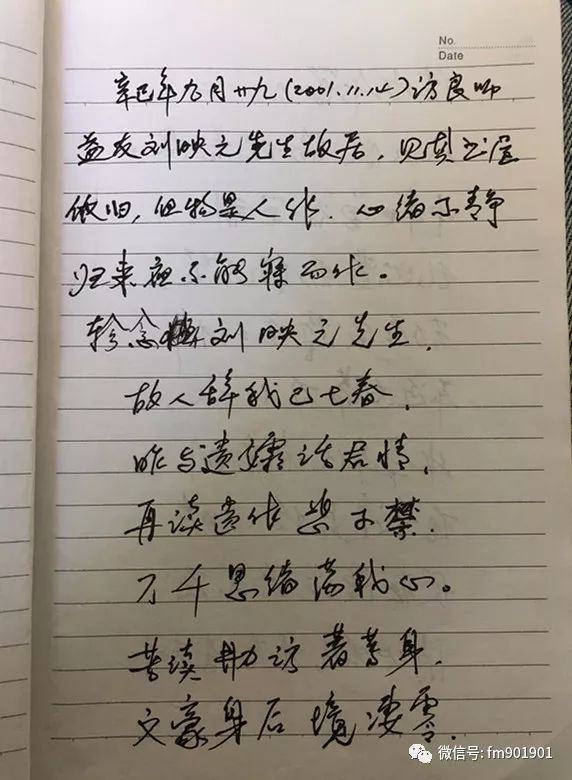 No.
Date
辛巳年九月廿九(2001.11.14)访良师
益友刘映元先生故居,见其书屋
依旧,但物是人非.心绪不静
归来夜不能寐而作。
轸念刘映元先生.
故人辞我已七春,
昨与遗孀话君情,
再读遗作悲不禁.
万千思绪荡我心。
苦读勤访著等身.
文豪身后境凄零.
微信号: fm901901